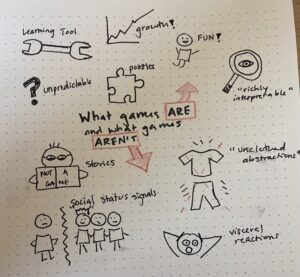 Learning Tool
growth!
FUN!
? unpredictable
puzzles
"richly
interpretable"
What games ARE
and what games
AREN'T
NOT A
GAME
Stories
"unclothed
abstractions"
Social status signals
visceral
reactions